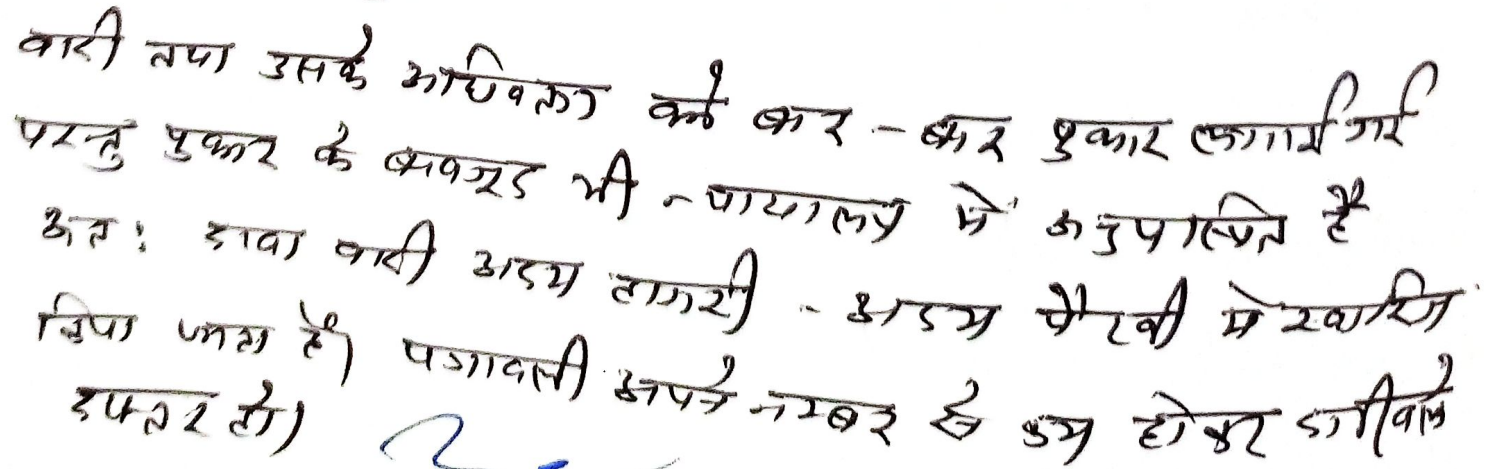 वादी तथा उसके अधिवक्ता को बार - बार पुकार लगाई गई
परन्तु पुकार के बावजूद भी न्यायालय में अनुपस्थित है
अतः दावा वादी अदम हाजरी - अदम पैरवी मे खारिज
किया जाता है। पत्रावली अपने नम्बर से कम होकर दाखिल
दफ्तर हो।